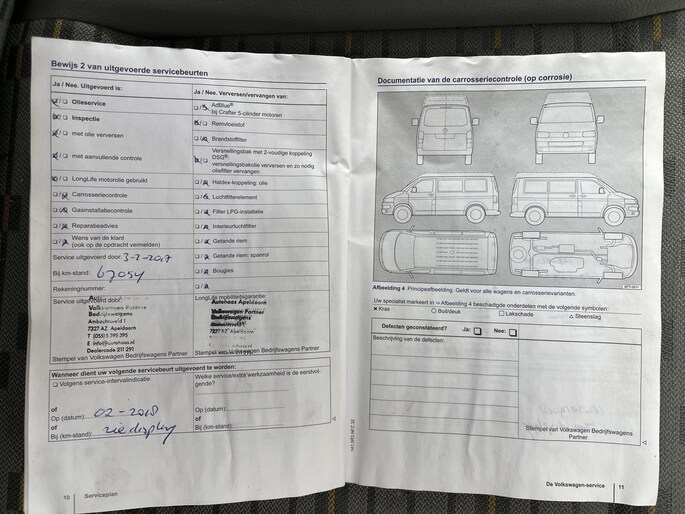 Bewijs 2 van uitgevoerde servicebeurten
Ja / Nee. Uitgevoerd is:
Olieservice
Inspectie
met olie verversen
met aanvullende controle
LongLife motorolie gebruikt
Carrosseriecontrole
Gasinstallatiecontrole
Reparatieadvies
Wens van de klant
(ook op de opdracht vermelden)
Service uitgevoerd door: 3-2-2017
Bij km-stand: 67054
Rekeningnummer:
Service uitgevoerd door:
Volkswagen
Bedrijfswagens
Ambachtsveld 1
7327 AZ Apeldoorn
T (055) 5 395 395
E info@autohaas.nl
Dealercode 211 291
Stempel van Volkswagen Bedrijfswagens Partner
Ja / Nee. Verversen/vervangen van:
AdBlue®
bij Crafter 5-cilinder motoren
Remvloeistof
Brandstoffilter
Versnellingsbak met 2-voudige koppeling
DSG®:
versnellingsbakolie verversen en zo nodig
oliefilter vervangen
Haldex-koppeling: olie
Luchtfilterelement
Filter LPG-installatie
Interieurluchtfilter
Getande riem
Getande riem: spanrol
Bougies
LongLife mobiliteitsgarantie:
Autohaas Apeldoorn
Volkswagen
Bedrijfswagens
7327 AZ Apeldoorn
Stempel van Volkswagen Bedrijfswagens Partner
Wanneer dient uw volgende servicebeurt uitgevoerd te worden:
Volgens service-intervalindicatie
of
Op (datum): 02-2018
of
Bij (km-stand): zie display
Welke service/extra werkzaamheid is de eerstvol-
gende?
Op (datum):
of
Bij (km-stand):
10 Serviceplan
Documentatie van de carrosseriecontrole (op corrosie)
Afbeelding 4 Principeafbeelding. Geldt voor alle wagens en carrosserievarianten.
Uw specialist markeert in ⇒ Afbeelding 4 beschadigde onderdelen met de volgende symbolen:
× Kras ○ Buil/deuk □ Lakschade △ Steenslag
Defecten geconstateerd? Ja: □ Nee: □
Beschrijving van de defecten:
Stempel van Volkswagen Bedrijfswagens
Partner
De Volkswagen-service 11